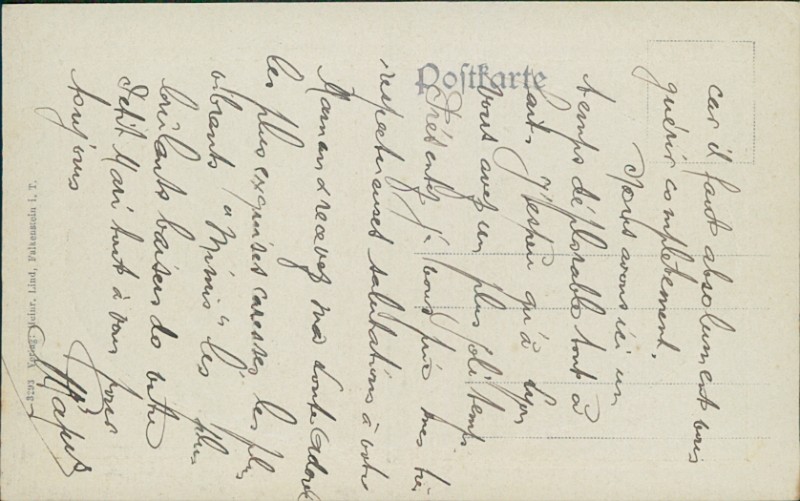 Postkarte
car il faut absolument vous
guérir complètement.
Nous avons ici un
temps déplorable tout à
fait, j'espère qu'à Lyon
vous avez un plus joli temps
Présentez je vous prie mes très
respectueuses salutations à votre
Maman & recevez ma toute adorée
les plus exquises caresses les plus
vibrants "Mimis" les plus
brûlants baisers de votre
Petit Mari tout à vous pour
toujours
Verlag Heinr. Lind, Falkenstein i. T.